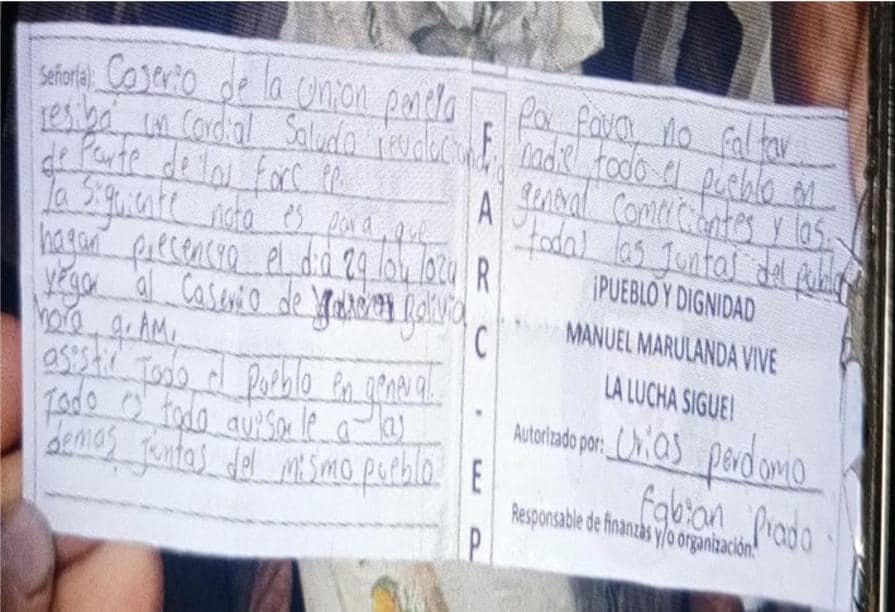 Señor(a): Caserio de la union peneya
resiba un cordial Saludo revolucionario
de Parte de las farc ep.
la Siguiente nota es para que
hagan precencya el dia 29/04/2024
vegar al Caserio de Bolivia
hora 9:AM.
asistir Todo el pueblo en general.
Todo es todo avisarle a las
demas juntas del mismo pueblo
F
A
R
C
-
E
P
Por favor no faltar
nadie todo el pueblo en
general comerciantes y las
todas las Juntas del pueblo
¡PUEBLO Y DIGNIDAD
MANUEL MARULANDA VIVE
LA LUCHA SIGUE!
Autorizado por: Urias perdomo
Fabian Prado.
Responsable de finanzas y/o organización.